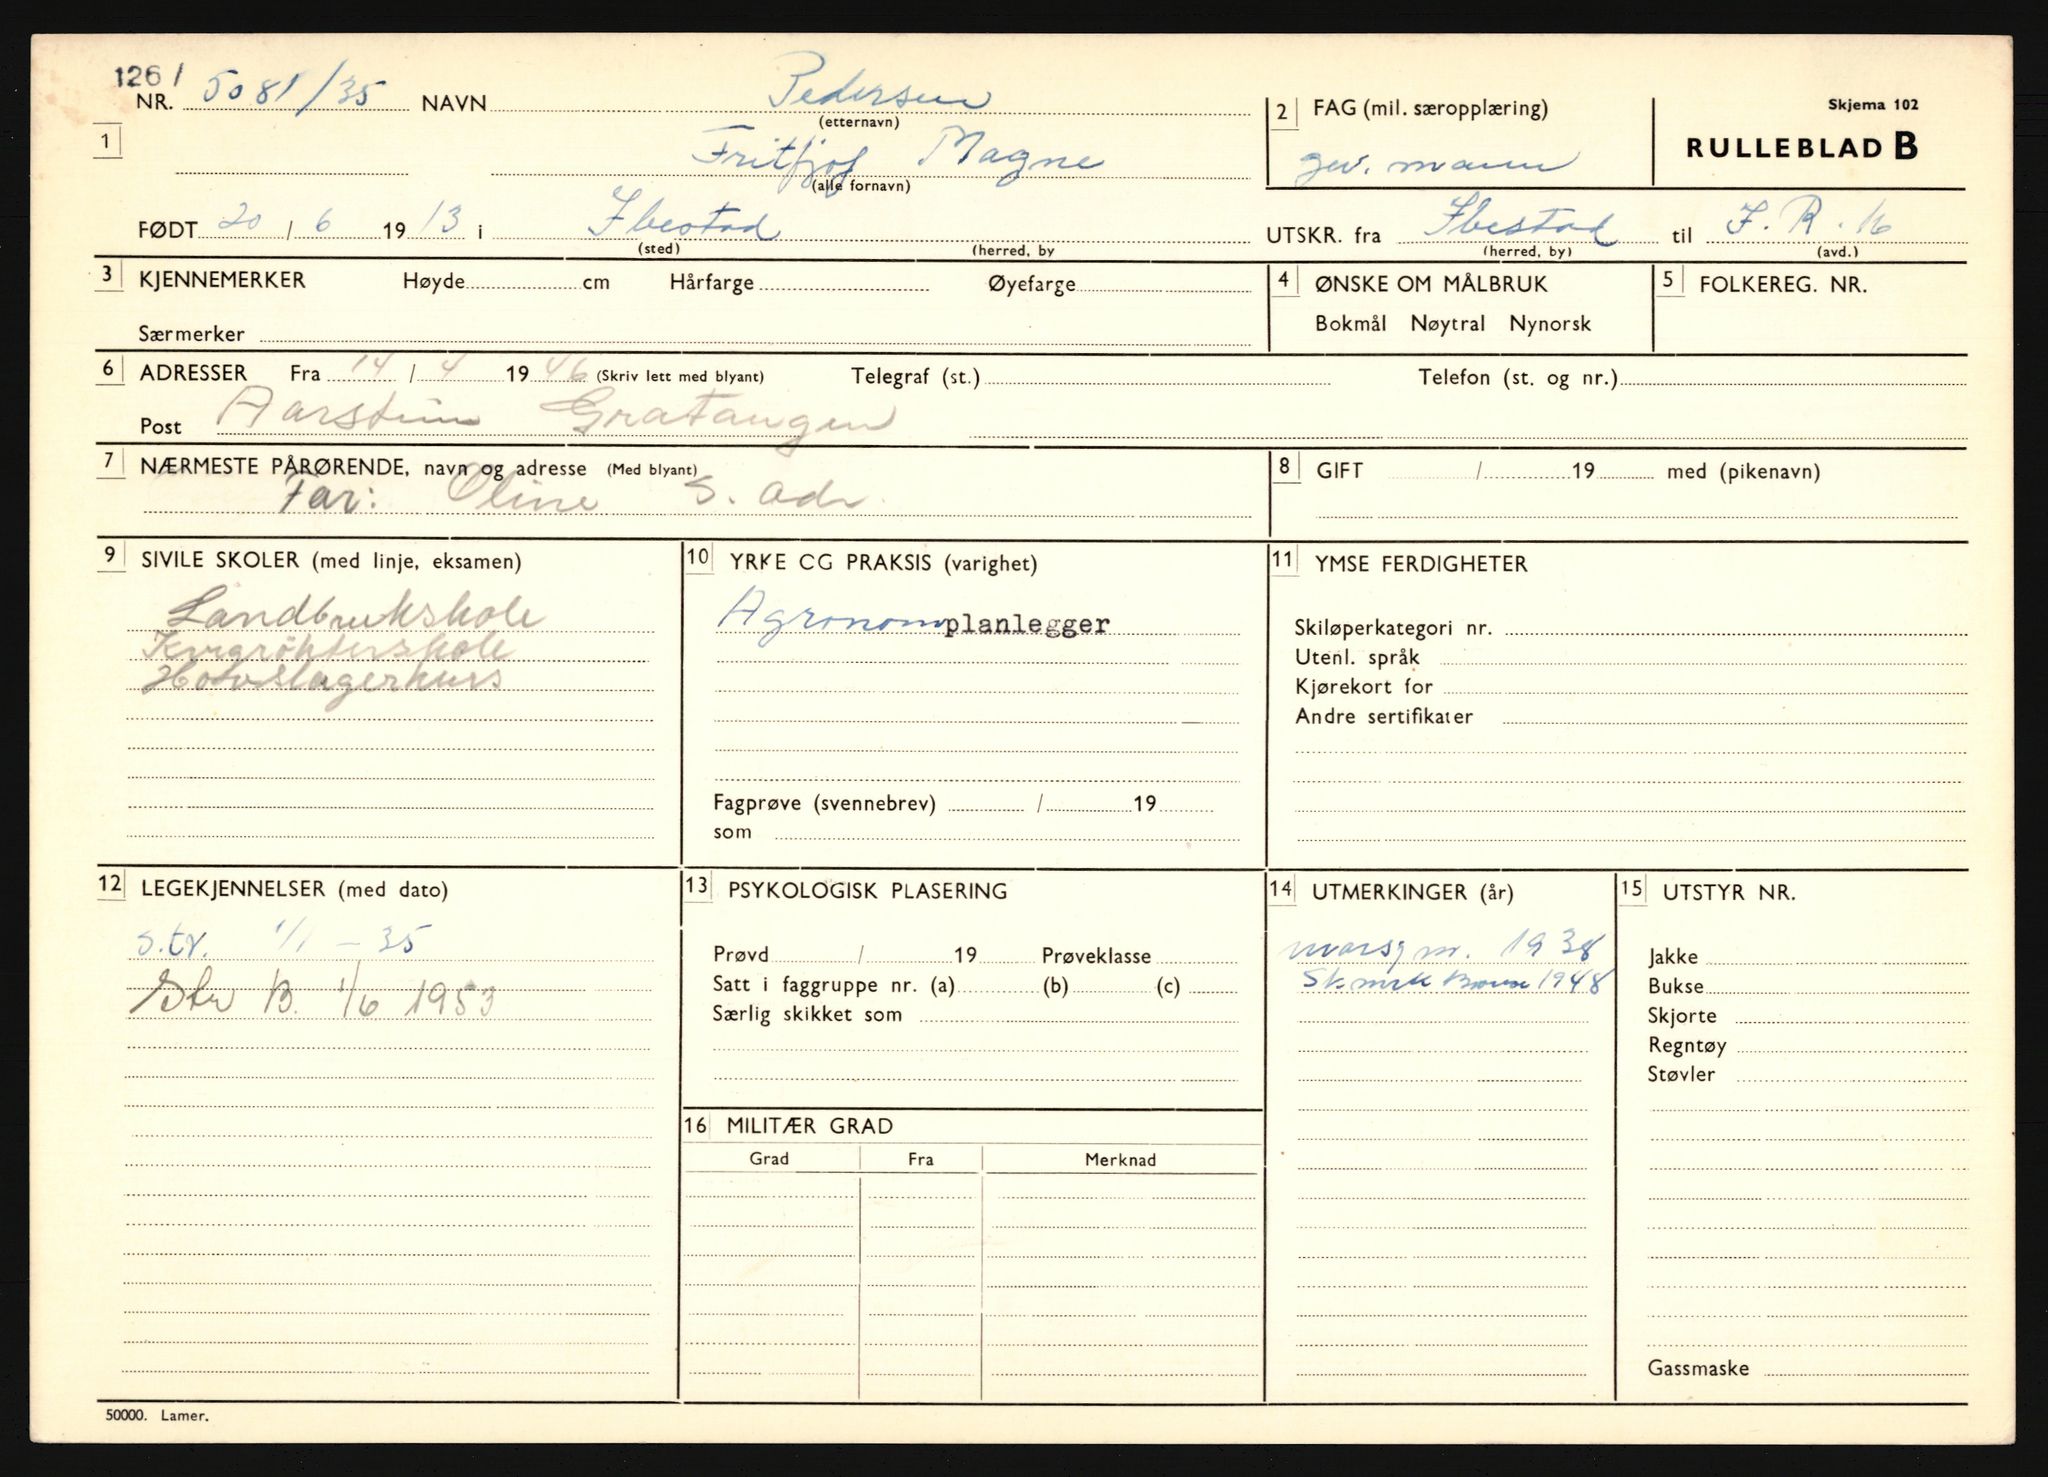 126 /
NR. 5081/35 NAVN Pedersen
(etternavn)
1
Fritfjof Magne
(alle fornavn)
2 FAG (mil. særopplæring)
gev. mann
Skjema 102
RULLEBLAD B
FØDT 20 / 6 19 13 i Ibestad
(sted) (herred, by
UTSKR. fra Ibestad til I. R. 16
(herred, by) (avd.)
3 KJENNEMERKER Høyde cm Hårfarge Øyefarge
Særmerker
4 ØNSKE OM MÅLBRUK
Bokmål Nøytral Nynorsk
5 FOLKEREG. NR.
6 ADRESSER Fra 14 / 4 19 46 (Skriv lett med blyant) Telegraf (st.) Telefon (st. og nr.)
Post Aarstein Gratangen
7 NÆRMESTE PÅRØRENDE, navn og adresse (Med blyant)
Far: Oline s. adr.
8 GIFT / 19 med (pikenavn)
9 SIVILE SKOLER (med linje, eksamen)
Landbrukskole
Hovslagerkurs
10 YRKE CG PRAKSIS (varighet)
Agronom planlegger
Fagprøve (svennebrev) / 19
som
11 YMSE FERDIGHETER
Skiløperkategori nr.
Utenl. språk
Kjørekort for
Andre sertifikater
12 LEGEKJENNELSER (med dato)
s.tr. 1/1 - 35
Str B. 1/6 1953
13 PSYKOLOGISK PLASERING
Prøvd / 19 Prøveklasse
Satt i faggruppe nr. (a) (b) (c)
Særlig skikket som
14 UTMERKINGER (år)
marsj m. 1938
Sk.merke Bronse 1948
15 UTSTYR NR.
Jakke
Bukse
Skjorte
Regntøy
Støvler
Gassmaske
16 MILITÆR GRAD
Grad Fra Merknad
50000. Lamer.